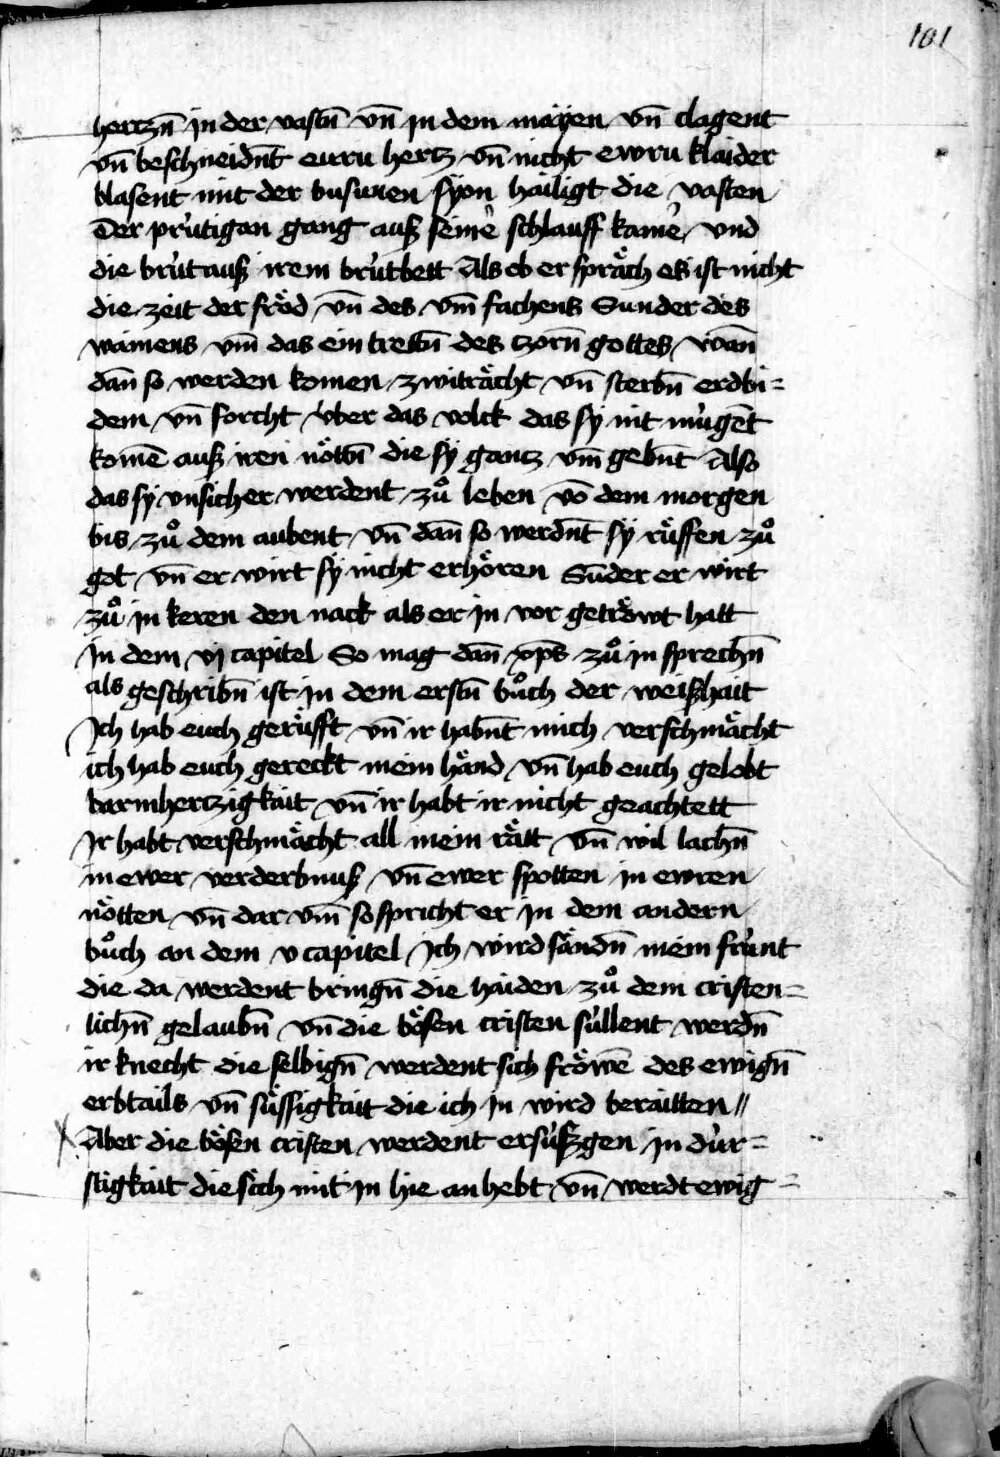 101
hertzn̄ in der vastn̄ vn̄ in dem mäyen vn̄ clagent
vn̄ beschneidn̄t euru hertz vn̄ nicht ewru klaider
blasent mit der busunen syon hailigt die vasten
Der prútigan gang auß seinē schlauff kamē vnd
die brút auß irem brútbett Als ob er sprǎch es ist nicht
die zeit der frǒd vn̄ des vm̄ fachens Sunder des
wainens vm̄ das ein trettn̄ des zorn̄ gottes wan̄
dan̄ so werden komen zwitrǎcht vn̄ sterbn̄ erdbi=
dem vn̄ forcht v́ber das volck das sy nit múgēt
komē auß iren nǒttn̄ die sy gantz vm̄ gebn̄t Also
das sy vnsicher werdent zů leben vō dem morgen
bis zů dem aubent vn̄ dan̄ so werdn̄t sy rǔffen zů
got vn̄ er wirt sy nicht erhǒren Sūder er wirt
zů in keren den nack als er in vor getrǒwt hatt
in dem vj capitel So mag dan̄ xp̄s zů in sprechn̄
als geschribn̄ ist in dem erstn̄ bůch der weißhait
Ich hab euch gerǔfft vn̄ ir habn̄t mich verschmǎcht
ich hab euch gereckt mein hǎnd vn̄ hab euch gelobt
barmhertzigkait vn̄ ir habt ir nicht geachtett
Ir habt verschmǎcht all mein rǎtt vn̄ wil lachn̄
in ewer verderbnuß vn̄ ewer spotten in ewren
nǒtten vn̄ dar vm̄ so spricht er in dem andern
bůch an dem v capitel Ich wird sǎndn̄ mein frúnt
die da werdent bringn̄ die haiden zů dem cristen=
lichn̄ gelaubn̄ vn̄ die bǒsen cristen súllent werdn̄
ir knecht die selbign̄ werdent sich frǒwē des ewign̄
erbtails vn̄ sǔssigkait die ich in wird beraitten //
Aber die bǒsen cristen werdent ersúfzgen in dúr=
stigkait die sich mit in hie anhebt vn̄ werdt ewig=